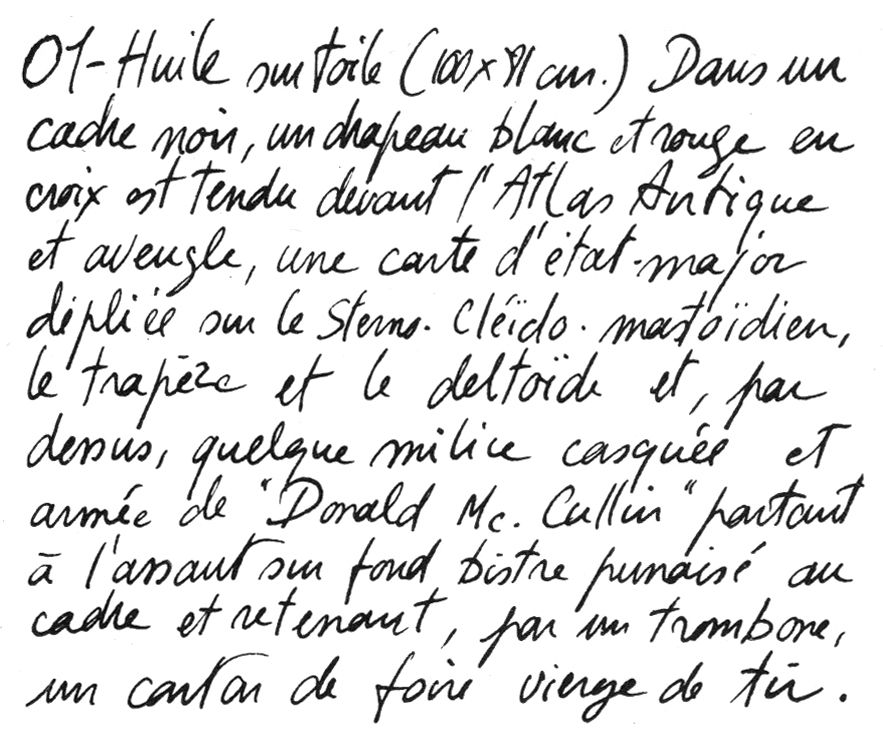 01-Huile sur toile (100 x 81 cm.) Dans un
cadre noir, un drapeau blanc et rouge en
croix est tendu devant l'"Atlas Antique
et aveugle, une carte d'état-major
dépliée sur le Sterno. Cléïdo. mastoïdien,
le trapèze et le deltoïde et, par
dessus, quelque milice casquée et
armée de "Donald Mc. Cullin" partant
à l'assaut sur fond bistre punaisé au
cadre et retenant, par un trombone,
un carton de foire vierge de tir.